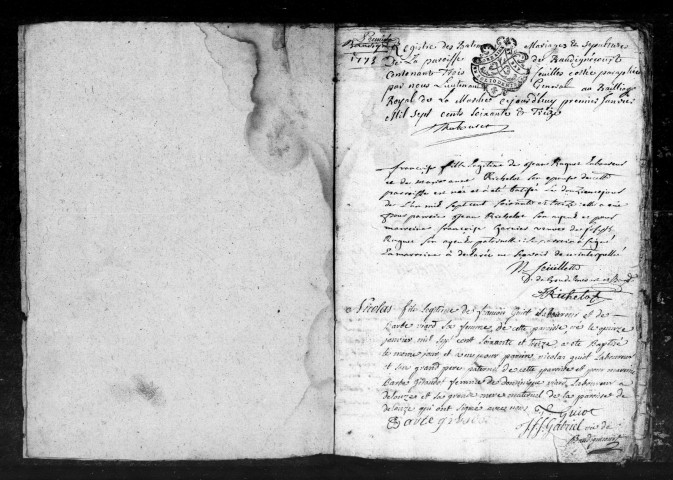 1773
Registre des Batêmes Mariages & Sepultures
de La paroisse de Baudignecourt
contenant trois feuilles cottés paraphés
par nous Lieutenant General au Bailliage
Royal de La Marche cejourd'huy premier Janvier
Mil sept cents soixante & treize
françoise fille legitime de Jean Raguet Laboureur
et de marie anne Richelot son epouse de cette
paroisse est née et a été batisée le douze
de L'an mil sept cent soixante et treize elle a eu
pour parrein Jean Richelot son ayeul et pour
marreine françoise Garnier veuve de
Raguet son ayeule paternelle le parrein a signé
La marreine a declarée ne sçavoir de ce interpellé
Richelot
Nicolas fils legitime de francois Guiot Laboureur et de
Barbe viard Sa femme, de cette paroisse, né le quinze
janvier mil sept cent soixante et treize, a ete Baptisé
le meme jour et a eu pour parein, nicolas guiot Laboureur
et son grand pere paternel de cette paroisse et pour mareine
Barbe giraudet femme de dominique viard Laboureur a
delouze et sa grande mere maternel de la paroisse de
delouze qui ont signé avec nous N Guiot
Barbe
Gabriel curé de
Baudignecourt